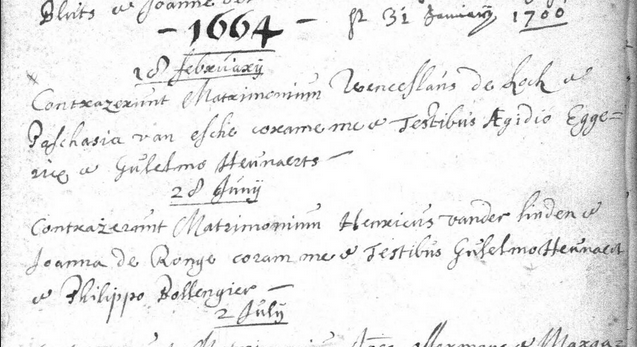 Pluts et Joanne
- 1664 - fr 31 January 1700
18 february
Contraxerunt Matrimonium Wenceslaus de Kock et
Paschasia van esche corame me et Testibus Ægidio Egge=
rix et Gulielmo Heunaerts -
28 Junij
Contraxerunt Matrimonium Henricus vander linden et
Joanna de Ronge coram me et Testibus Gulielmo Heunaert
et Philippo Bollengier -
2 July
Matrimonium ollermans et Marga=